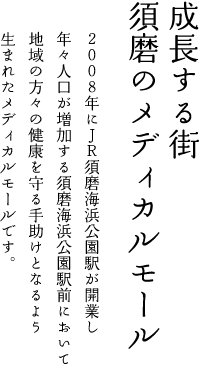 成長する街
須磨のメディカルモール
2008年にJR須磨海浜公園駅が開業し
年々人口が増加する須磨海浜公園駅前において
地域の方々の健康を守る手助けとなるよう
生まれたメディカルモールです。